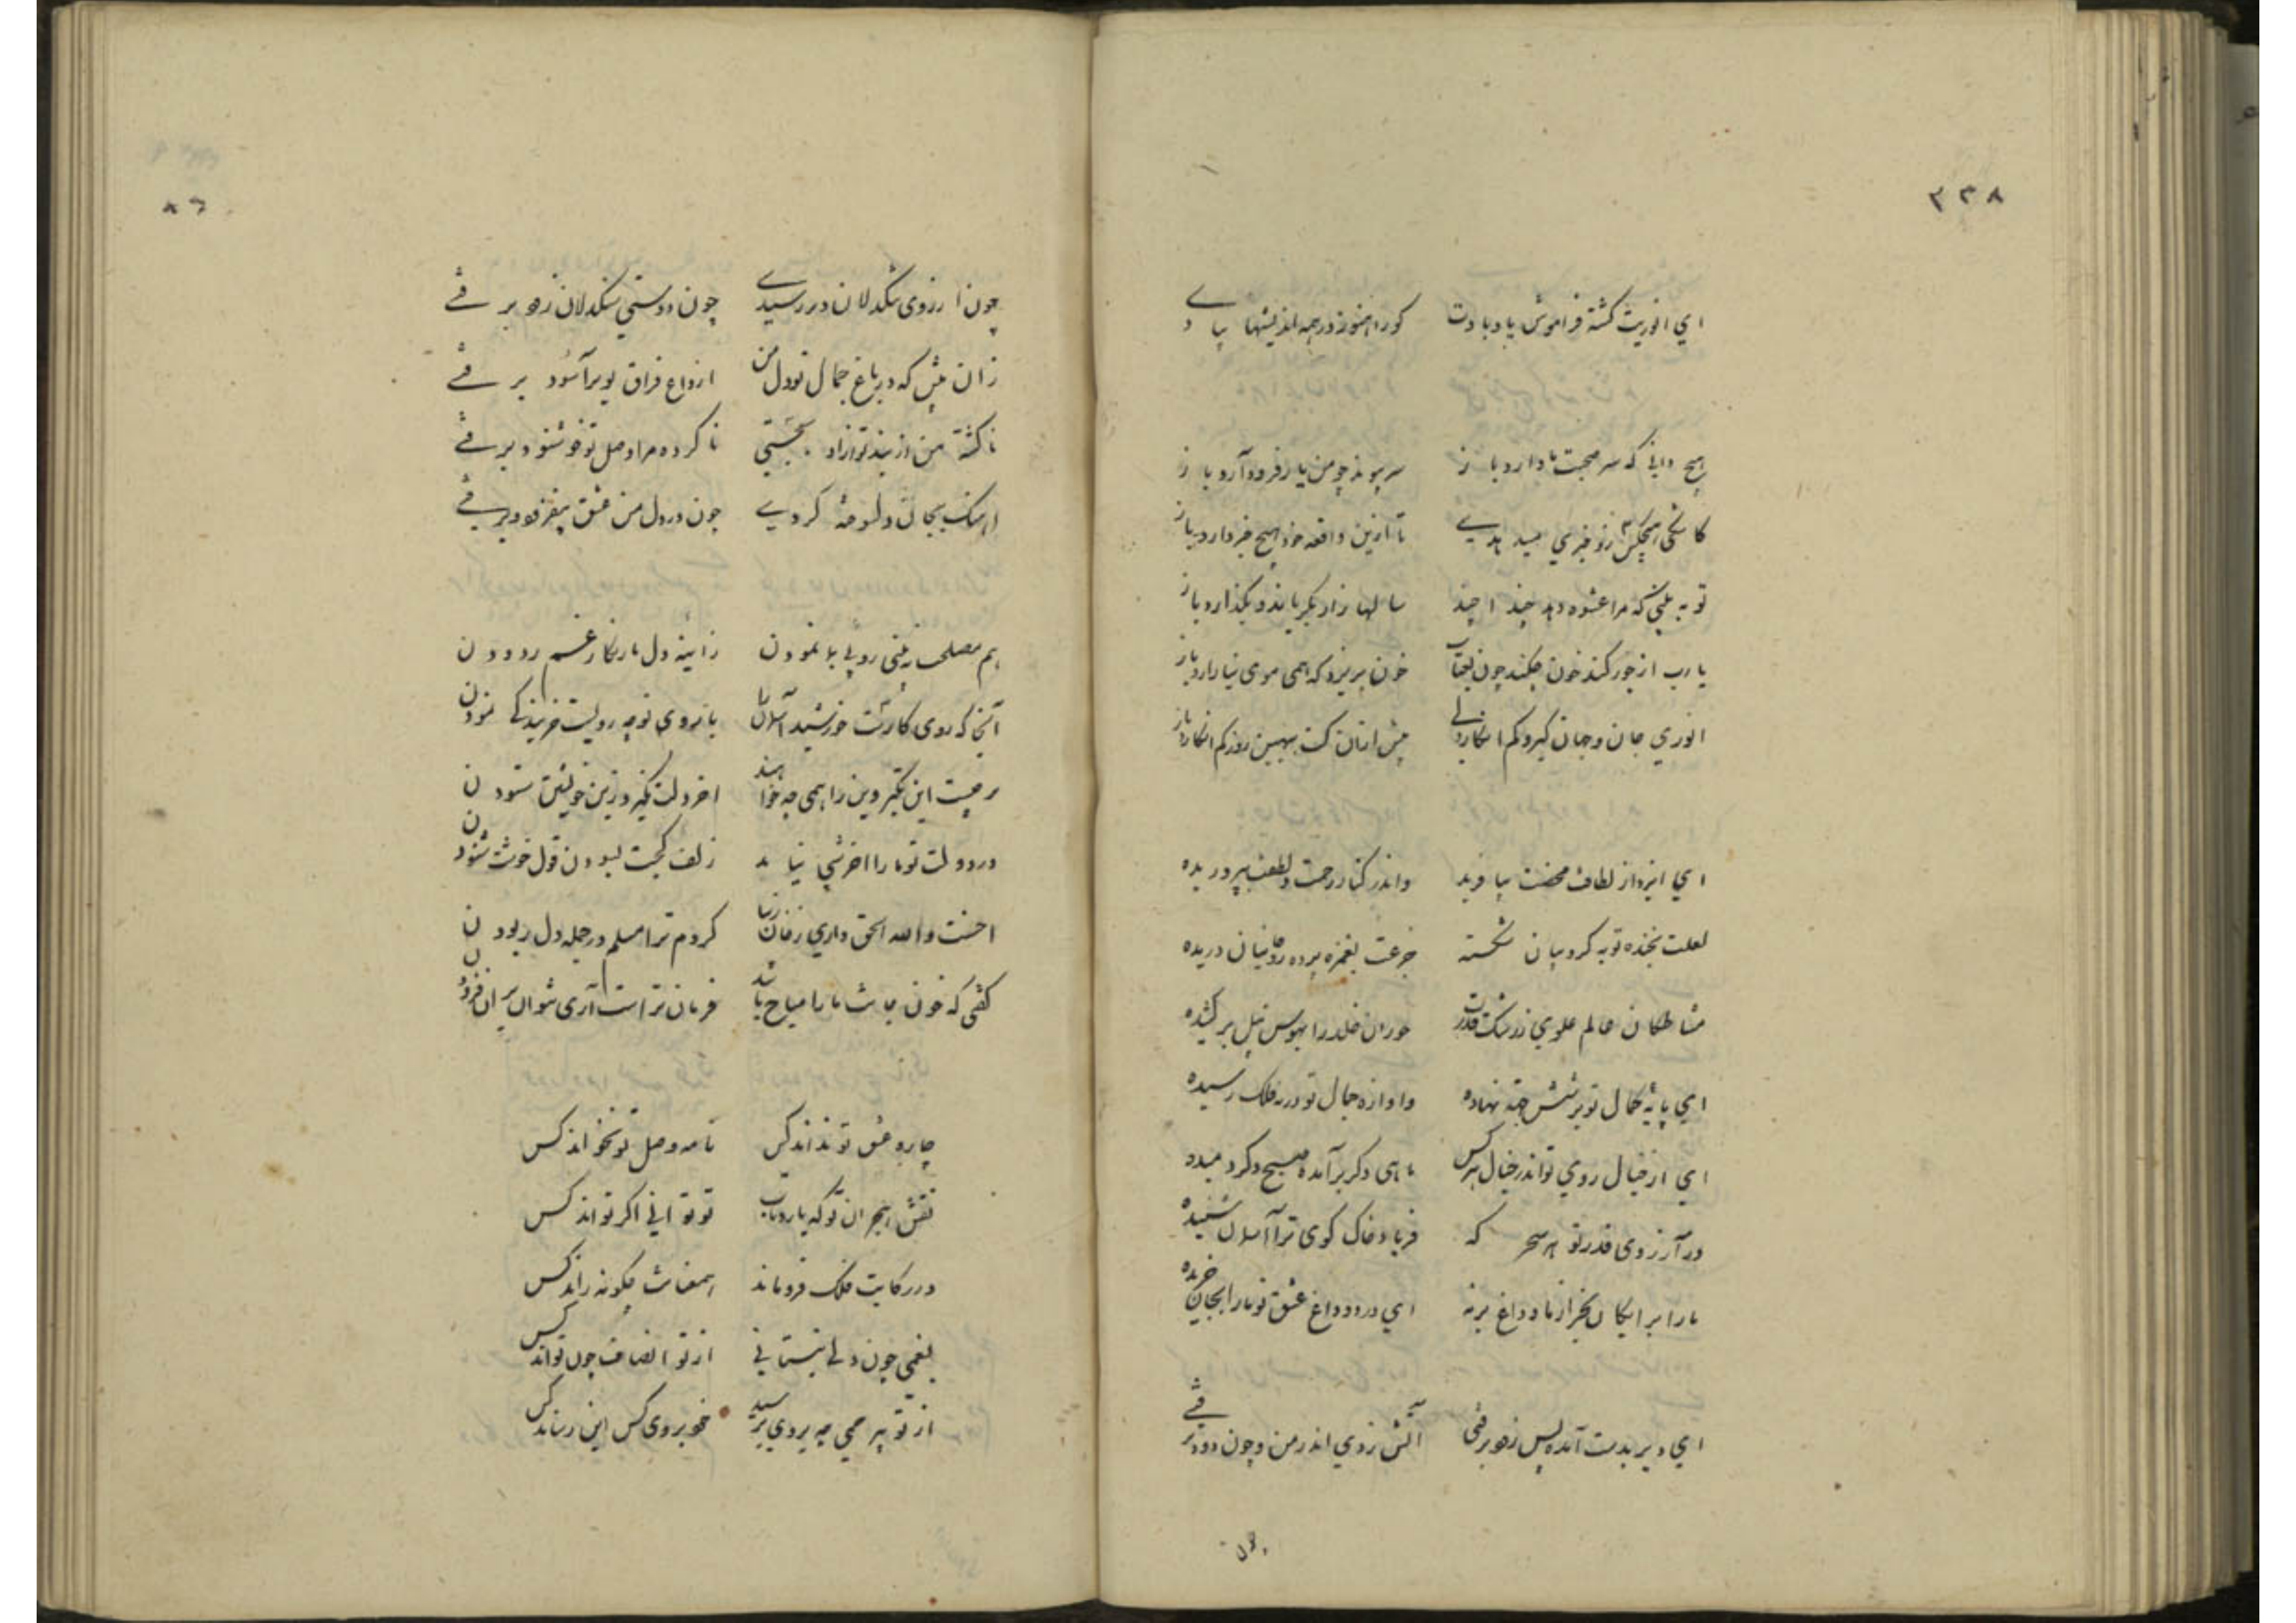 ۳۳۸
ای انوریت گشته فراموش یاد بادت کو را هنوز در همه اندیشها بیادی
هیچ دانی که سر صحبت ما دارد باز سر پیوند چو من یار فرود آرد باز
کاشکی هیچکس زو خبری میدهدی تا ازین واقعه خود هیچ خبر دارد باز
تو به بینی که مرا عشوه دهد چندا چند سالها زار بگریاند و بگذارد باز
یارب ار جور کند خون چکند چون بعتاب خون بریزد که همی موی نیازارد باز
انوری جان و جهان گیر و کم انگار دلی پیش ازان کت بهمین روز کم انگارد باز
ای ایزد از لطافت محضت بیافرید واندر کنار رحمت و لطفت بپروریده
لعلت بخنده توبه کروبیان شکسته جزعت بغمزه پرده روحانیان دریده
مشاطگان عالم علوی ز رشک قدرت حوران خلد را بهوس نیل برکشیده
ای پایه کمال تو بر شش جهة نهاده واوازه جمال تو در نه فلک رسیده
ای از خیال روی تو اندر خیال هرکس ماهی دگر برآمده صبح دگر دمیده
در آرزوی قدر تو هر سحر که فریاد خاک کوی ترا آسمان شنیده
ما را برایگان بخر از ما و داغ برنه ای درد و داغ عشق تو ما را بجان خریده
ای دیر بدست آمده بس زود برفتی آتش زدی اندر من و چون دود برفتی
چون
۸۶
چون آرزوی تنگدلان دیر رسیدی چون دوستی سنگدلان زود برفتی
زان پیش که در باغ جمال تو دل من از داغ فراق تو برآسود برفتی
ناگشته من از بند تو آزاد بجستی ناکرده مرا وصل تو خوشنود برفتی
آهنگ بجان دلسوخته کردی چون در دل من عشق بیفزود برفتی
هم مصلحت نه بینی رویی بما نمودن زآئینه دل ما زنگار غم زدودن
آنجا که روی کارست خورشید آسمان را با روی تو چه رویست جز بندگی نمودن
بر چیست این تکبر وین را همی چه خوانند اخر دلت نگیرد زین خویشتن ستودن
در دولت تو ما را اخر شبی نیامد زلف کجت بسودن قول خوشت شنودن
احسنت والله الحق داری رخان زیبا کردم ترا مسلم در جمله دل ربودن
گفتی که خون و جانت ما را مباح باشد فرمان تراست آری نتوان بران فزودن
چاره عشق تو نداند کس نامه وصل تو نخواند کس
نقش هجران تو که یارد یافت تو توانی اگر تواند کس
در رکابت فلک فروماند هم عنانت چگونه راند کس
بغمی چون دلی نیستانی از تو انصاف چون تواند کس
از تو پیر همی چه بر وی پرسید خوبروی کس این رساند کس